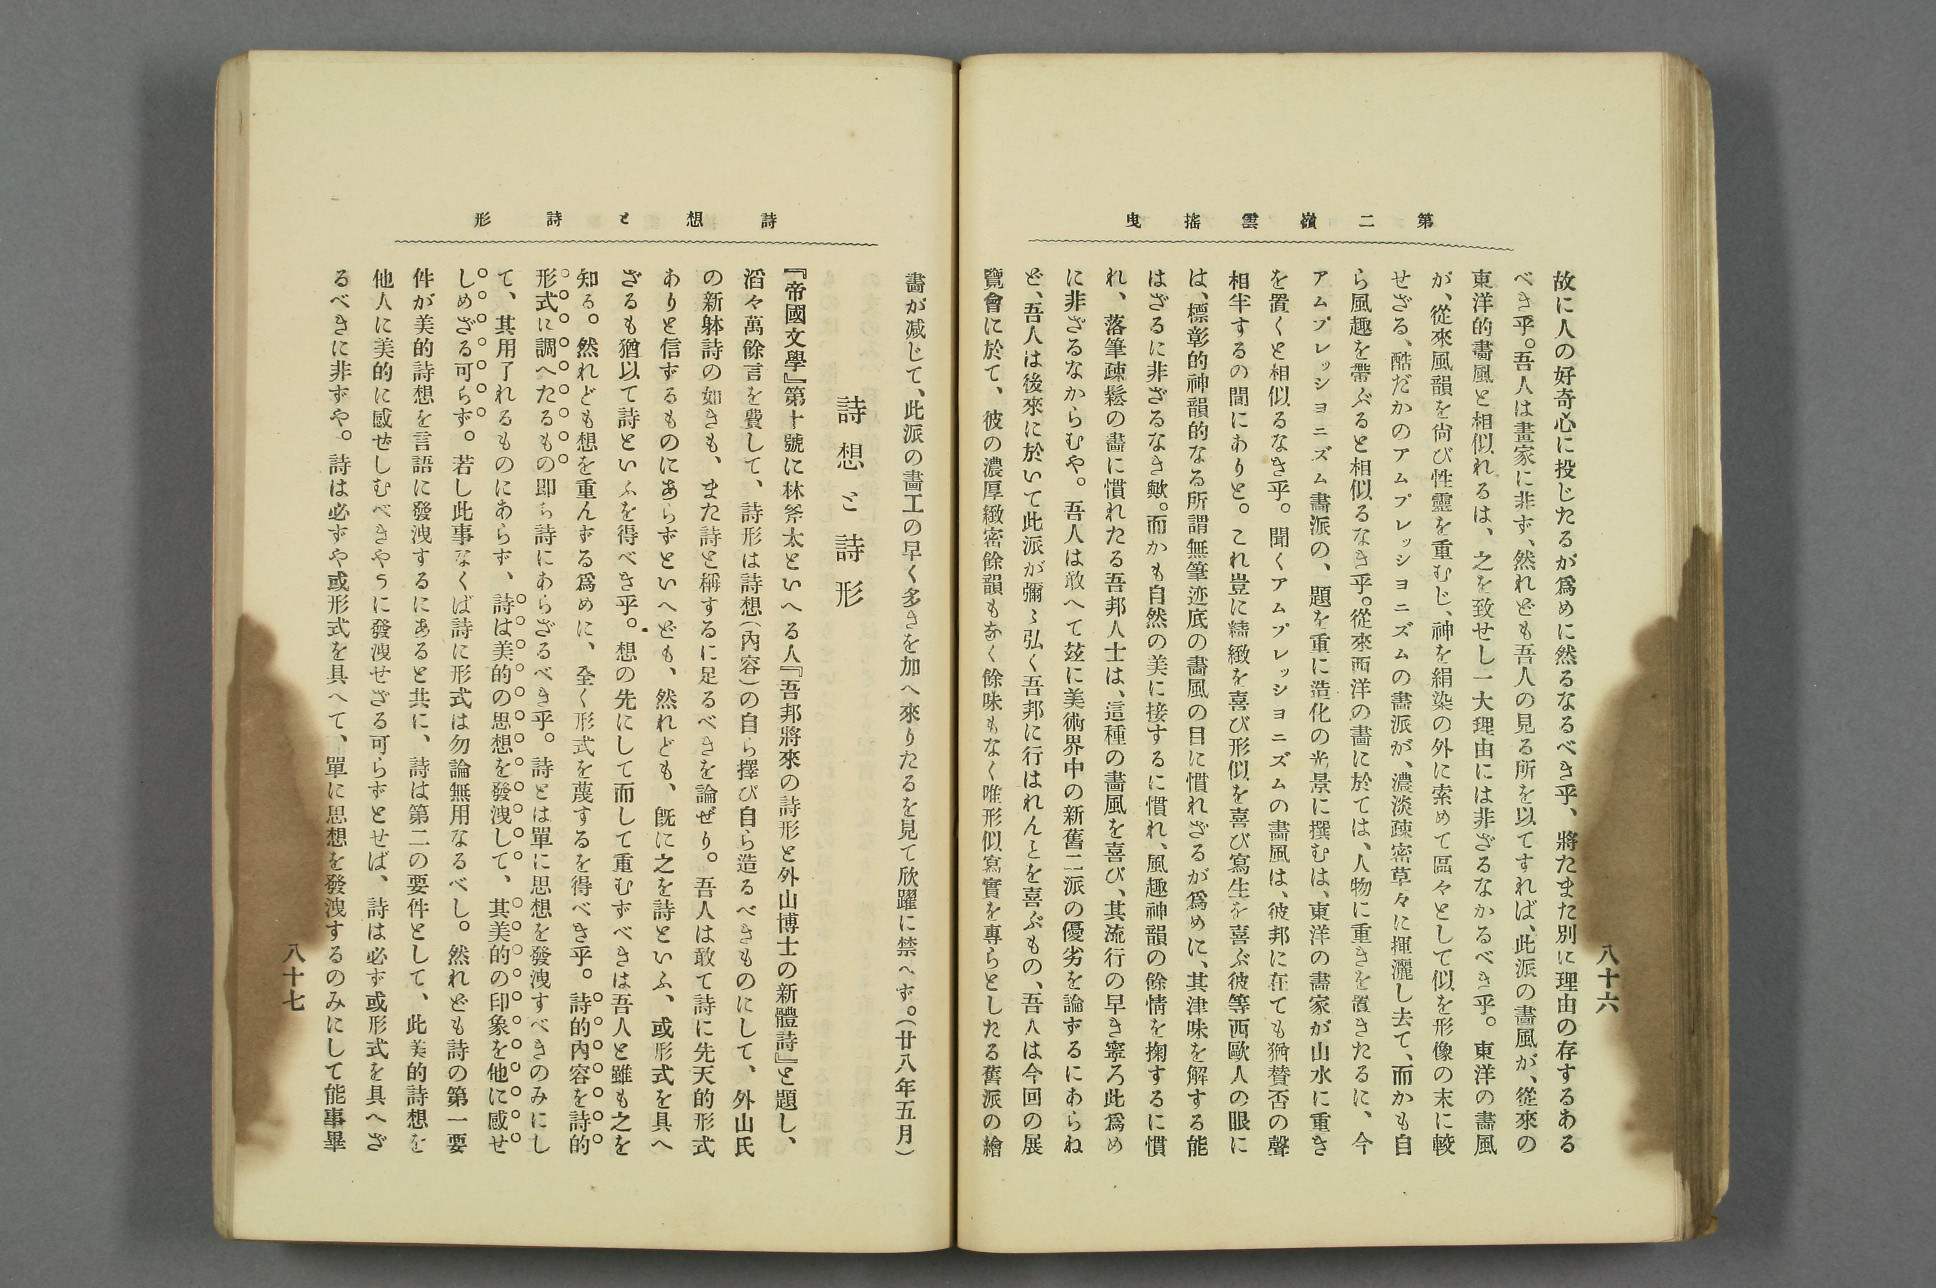 第二嶺雲搖曳
故に人の好奇心に投じたるが爲めに然るなるべき乎、將たまた別に理由の存するある
べき乎。吾人は畫家に非ず、然れども吾人の見る所を以てすれば、此派の畵風が、從來の
東洋的畵風と相似れるは、之を致せし一大理由には非ざるなかるべき乎。東洋の畵風
が、從來風韻を尙び性靈を重むじ、神を絹染の外に索めて區々として似を形像の末に較
せざる、酷だかのアムプレッショニズムの畵派が、濃淡疎密草々に揮灑し去て、而かも自
ら風趣を帶ぶると相似るなき乎。從來西洋の畵に於ては、人物に重きを置きたるに、今
アムプレッショニズム畵派の、題を重に造化の光景に撰むは、東洋の畵家が山水に重き
を置くと相似るなき乎。聞くアムプレッショニズムの畵風は、彼邦に在ても猶賛否の聲
相半するの間にありと。これ豈に精緻を喜び形似を喜び寫生を喜ぶ彼等西歐人の眼に
は、標彰的神韻的なる所謂無筆迹底の畵風の目に慣れざるが爲めに、其津味を解する能
はざるに非ざるなき歟。而かも自然の美に接するに慣れ、風趣神韻の餘情を掬するに慣
れ、落筆疎鬆の畵に慣れたる吾邦人士は、這種の畵風を喜び、其流行の早き寧ろ此爲め
に非ざるなからむや。吾人は敢へて玆に美術界中の新舊二派の優劣を論ずるにあらね
ど、吾人は後來に於いて此派が彌〻弘く吾邦に行はれんとを喜ぶもの、吾人は今回の展
覽會に於て、彼の濃厚緻密餘韻もなく餘味もなく唯形似寫實を專らとしたる舊派の繪
八十六
詩想と詩形
畵が减じて、此派の畵工の早く多きを加へ來りたるを見て欣躍に禁へず。(廿八年五月)
詩想と詩形
『帝國文學』第十號に林斧太といへる人『吾邦將來の詩形と外山博士の新體詩』と題し、
滔々萬餘言を費して、詩形は詩想(內容)の自ら擇び自ら造るべきものにして、外山氏
の新躰詩の如きも、また詩と稱するに足るべきを論ぜり。吾人は敢て詩に先天的形式
ありと信ずるものにあらずといへども、然れども、旣に之を詩といふ、或形式を具へ
ざるも猶以て詩といふを得べき乎。想の先にして而して重むずべきは吾人と雖も之を
知る。然れども想を重んずる爲めに、全く形式を蔑するを得べき乎。詩的內容を詩的
形式に調へたるもの卽ち詩にあらざるべき乎。詩とは單に思想を發洩すべきのみにし
て、其用了れるものにあらず、詩は美的の思想を發洩して、其美的の印象を他に感せ
しめざる可らず。若し此事なくば詩に形式は勿論無用なるべし。然れども詩の第一要
件が美的詩想を言語に發洩するにあると共に、詩は第二の要件として、此美的詩想を
他人に美的に感せしむべきやうに發洩せざる可らずとせば、詩は必ず或形式を具へざ
るべきに非ずや。詩は必ずや或形式を具へて、單に思想を發洩するのみにして能事畢
八十七